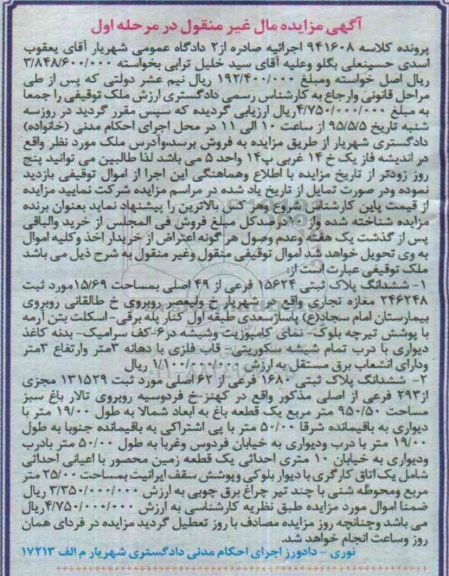 آگهی مزایده مال غیر منقول در مرحله اول
پرونده کلاسه ۹۴۱۶۰۸ اجرائیه صادره از۲ دادگاه عمومی شهریار آقای یعقوب
اسدی حسینعلی بگلو وعلیه آقای سید خلیل ترابی بخواسته ۳/۸۴۸/۶۰۰/۰۰۰
ریال اصل خواسته ومبلغ ۱۹۲/۴۰۰/۰۰۰ ریال نیم عشر دولتی که پس از طی
مراحل قانونی وارجاع به کارشناس رسمی دادگستری ارزش ملک توقیفی را جمعا
به مبلغ ۴/۷۵۰/۰۰۰/۰۰۰ریال ارزیابی گردیده که سپس مقرر گردید در روزسه
شنبه تاریخ ۹۵/۵/۵ از ساعت ۱۰ الی ۱۱ در محل اجرای احکام مدنی (خانواده)
دادگستری شهریار از طریق مزایده به فروش برسدوآدرس ملک مورد نظر واقع
در اندیشه فاز یک خ ۱۴ غربی پ۱۴ واحد ۵ می باشد لذا طالبین می توانید پنج
روز زودتر از تاریخ مزایده با اطلاع وهماهنگی این اجرا از اموال توقیفی بازدید
نموده ودر صورت تمایل از تاریخ یاد شده در مراسم مزایده شرکت نمایید مزایده
از قیمت پایین کارشناسی شروع وهر کس بالاترین را پیشنهاد نماید بعنوان برنده
مزایده شناخته شده و۱۰درصدکل مبلغ فروش فی المجلس از خرید والباقی
پس از گذشت یک هفته وعدم وصول هر گونه اعتراض از خریدار اخذ وکلیه اموال
به وی تحویل خواهد شد اموال توقیفی منقول وغیر منقول به شرح ذیل می باشد
ملک توقیفی عبارت است از:
۱- ششدانگ پلاک ثبتی ۱۵۶۲۴ فرعی از ۴۹ اصلی بمساحت ۱۵/۶۹مورد ثبت
۲۴۶۲۴۸ مغازه تجاری واقع در شهریار خ ولیعصر روبروی خ طالقانی روبروی
بیمارستان امام سجاد(ع) پاساژسعدی طبقه اول کنار پله برقی- اسکلت بتن آرمه
با پوشش تیرچه بلوک- نمای کامپوزیت وشیشه در۶-کف سرامیک- بدنه کاغذ
دیواری با درب تمام شیشه سکوریتی- قاب فلزی با دهانه ۳متر وارتفاع ۳متر
ودارای انشعاب برق مستقل به ارزش ۱/۱۰۰/۰۰۰/۰۰۰ ریال
۲- ششدانگ پلاک ثبتی ۱۶۸۰ فرعی از ۶۳ اصلی مورد ثبت ۱۳۱۵۲۹ مجزی
از۲۹۳ فرعی از اصلی مذکور واقع در کهنز-خ فردوسیه روبروی تالار باغ سبز
مساحت ۹۵۰/۵۰ متر مربع یک قطعه باغ به ابعاد شمالا به طول ۱۹/۰۰ متر با
دیواری به باقیمانده شرقا ۵۰/۰۰ متر با پی اشتراکی به باقیمانده جنوبا به طول
۱۹/۰۰ متر با درب ودیواری به خیابان فردوس وغربا به طول ۵۰/۰۰ متر بادرب
ودیواری به خیابان ۱۰ متری احداثی یک قطعه زمین محصور با اعیانی احداثی
شامل یک اتاق کارگری با دیوار بلوکی وپوشش سقف ایرانیت بمساحت ۲۵/۰۰ متر
مربع ومحوطه شنی با چند تیر چراغ برق چوبی به ارزش ۳/۳۵۰/۰۰۰/۰۰۰ ریال
ضمنا اموال مورد مزایده طبق نظریه کارشناسی به ارزش ۴/۷۵۰/۰۰۰/۰۰۰ریال
می باشد وچنانچه روز مزایده مصادف با روز تعطیل گردید مزایده در فردای همان
روز وساعت انجام خواهد شد.
نوری - دادورز اجرای احکام مدنی دادگستری شهریار م الف ۱۷۲۱۳